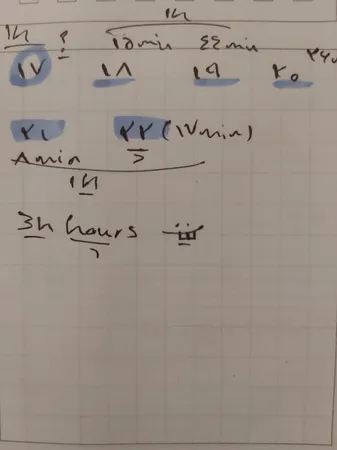 1h
1h ? ١٥min ٤٤min
١٧ ١٨ ١٩ ٢٠
٢١ ٢٢ (١٧min)
٨min ?
1h
3h hours
?